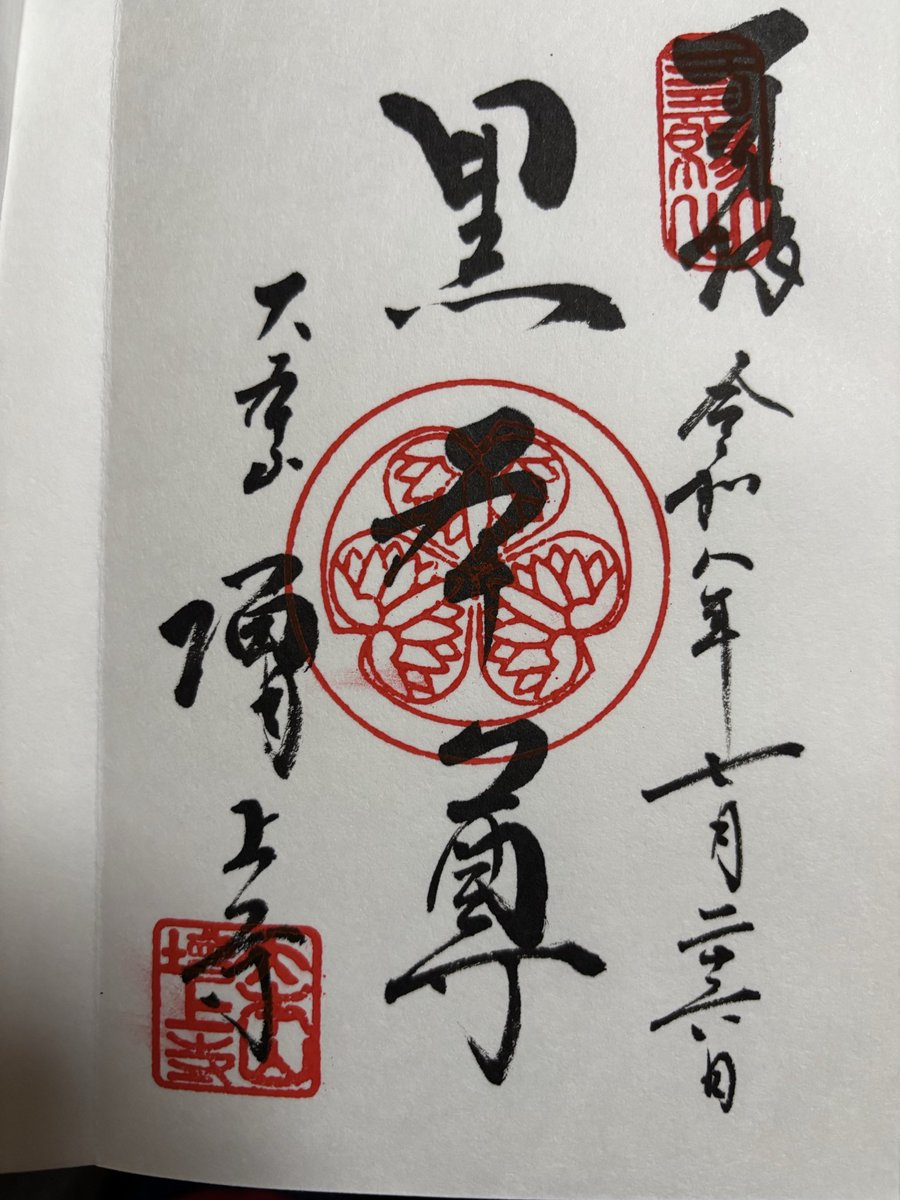 奉拝
令和八年七月二十六日
黒本尊
大本山
増上寺
三縁山
大本山増上寺